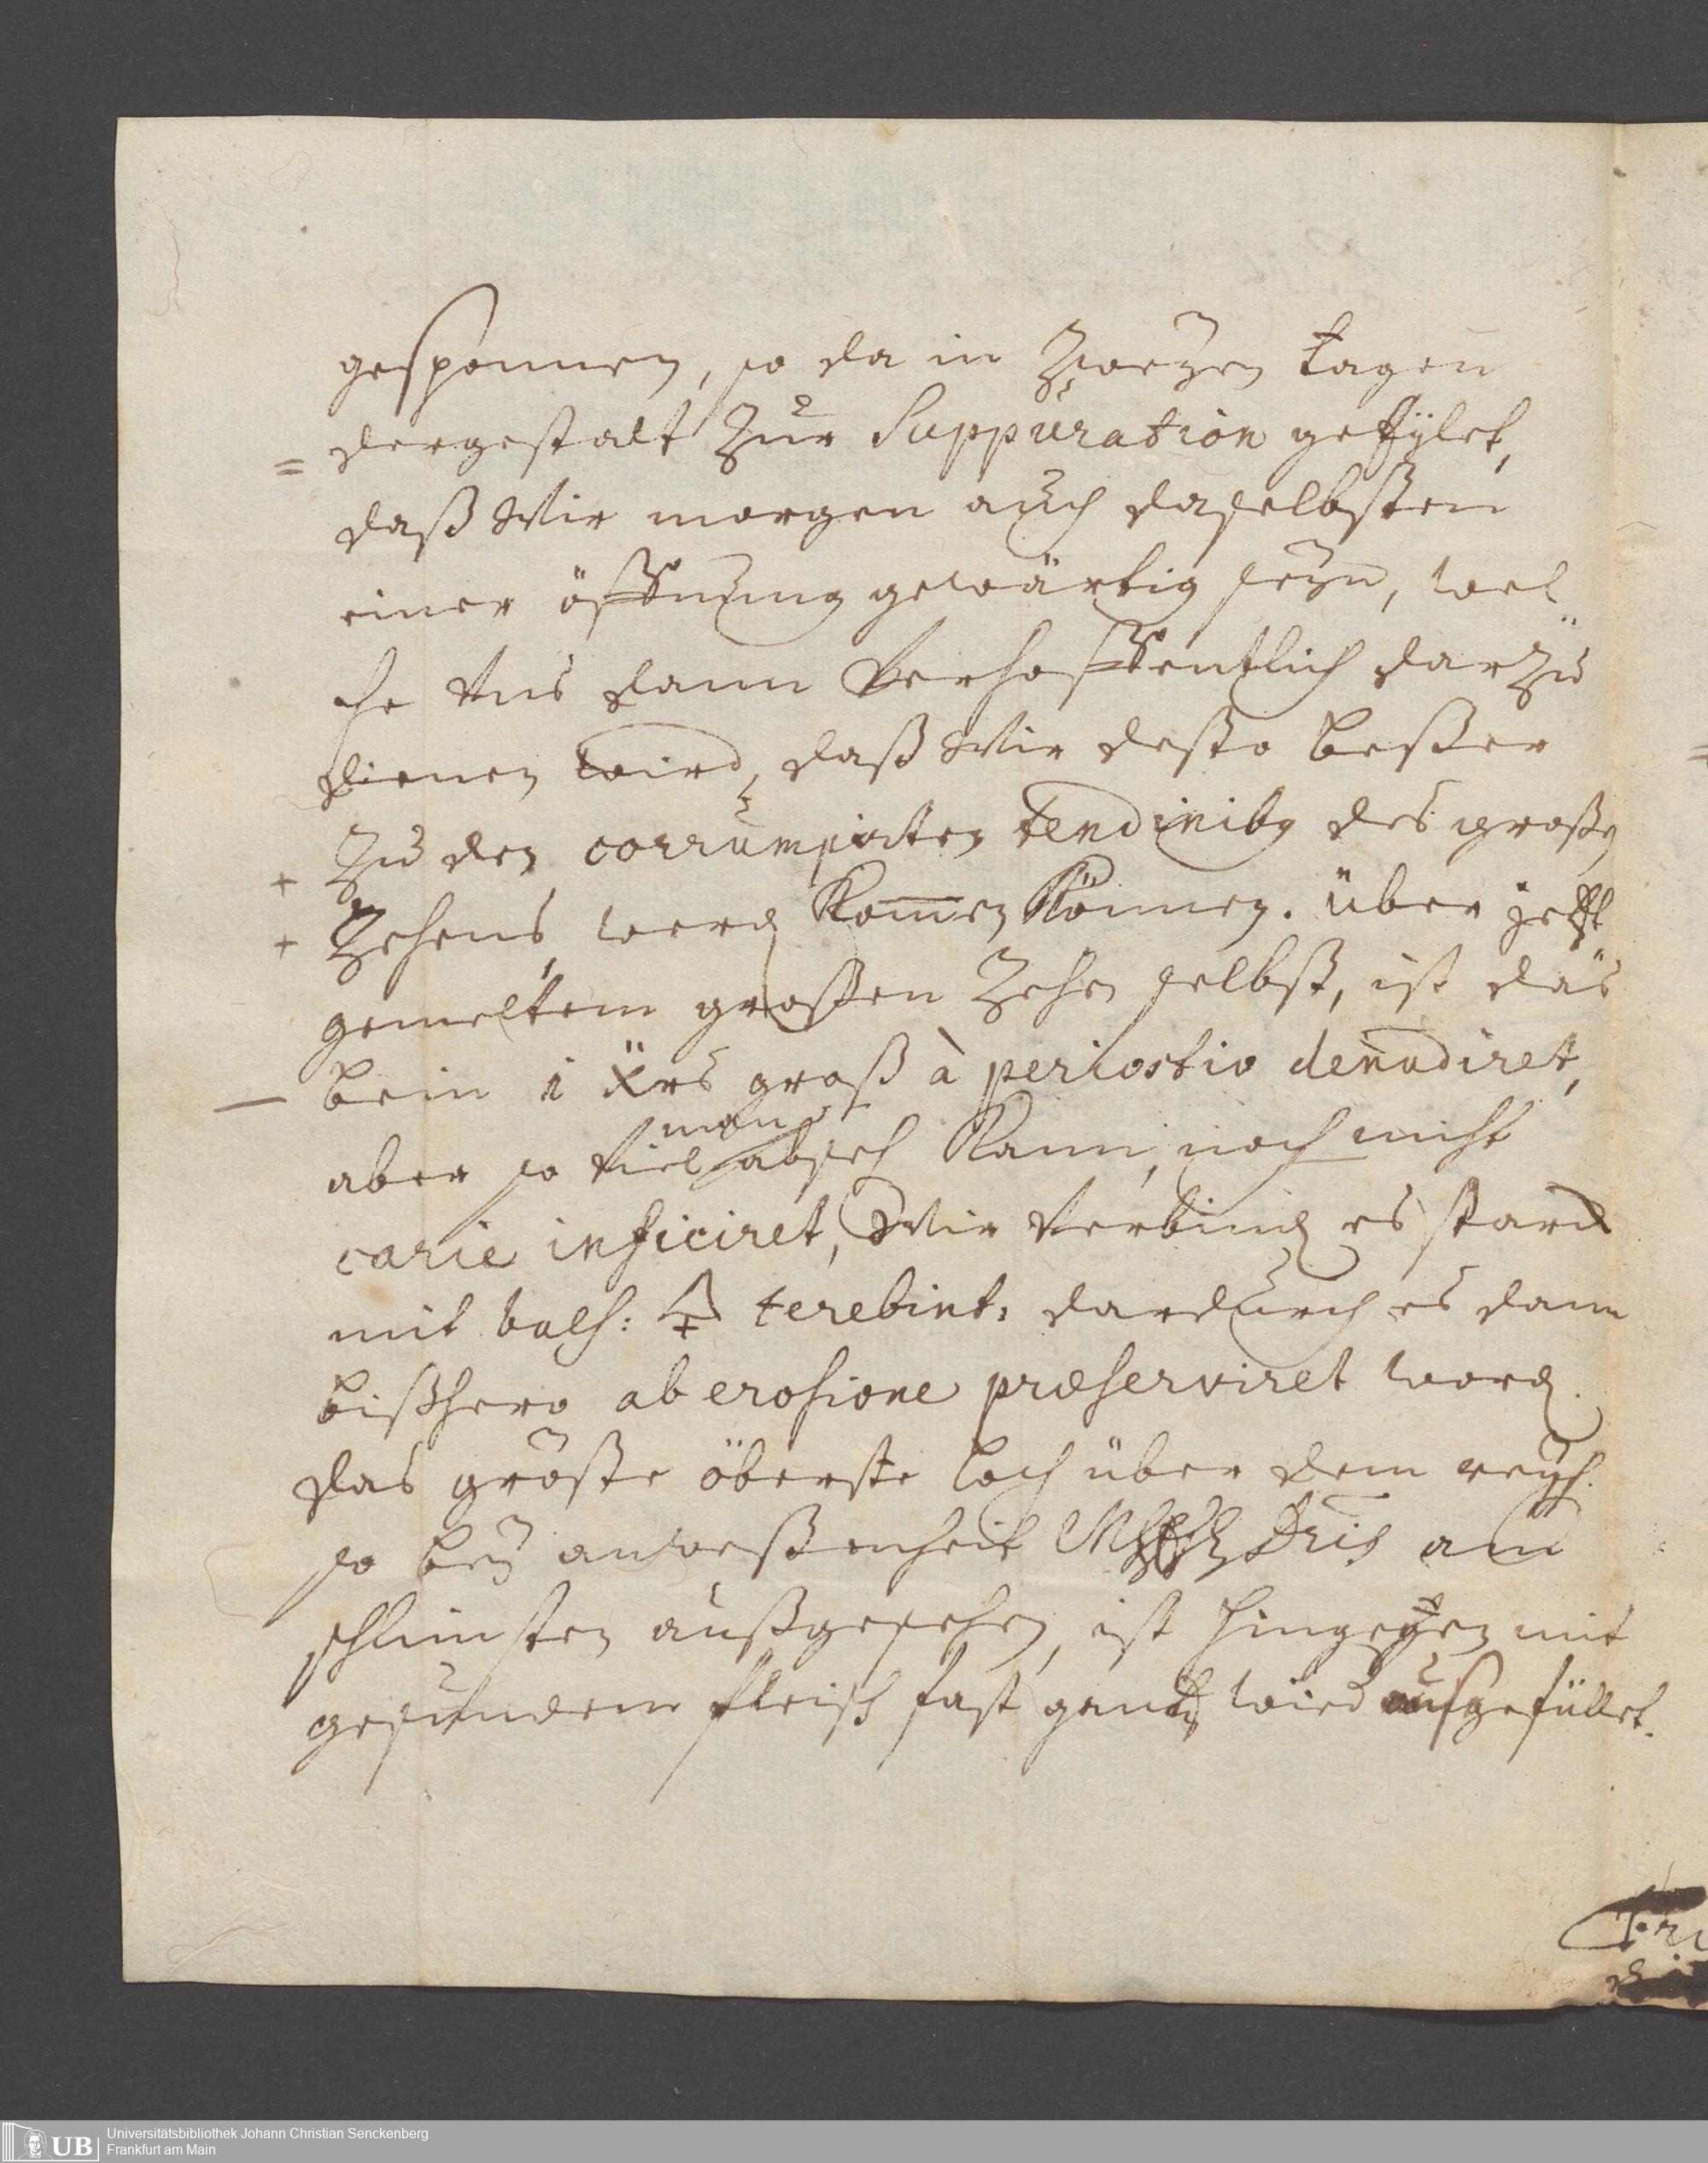 gesponnen, so da in Zweyen tagen
= dergestalt zur Suppuration geeylet,
daß Wir morgen auch daselbsten
einer öffnung gewärtig seyn, wel
che Uns dann Verhoffentlich darzu
dienen wird, daß Wir desto beßer
+ zu den corrumpirten tendinibg des großen
+ Zehens, werd Kommen Können. über jetzt
gemeltem großen Zehen selbst, ist das
— bein 1 Xrs groß à periostio denudiret,
man
aber so Viel abseh Kann, noch nicht
carie inficiret, Wir Verbind es starck
mit bals: terebint: dardurch es dann
bißhero ab erosione præserviret word.
das größte öberste loch über dem
so bey anweßenheit Dris am
schlimsten außgesehen, ist hingegen mit
gesundem fleisch fast gantz wied ausgefüllet.
UB
Universitätsbibliothek Johann Christian Senckenberg
Frankfurt am Main